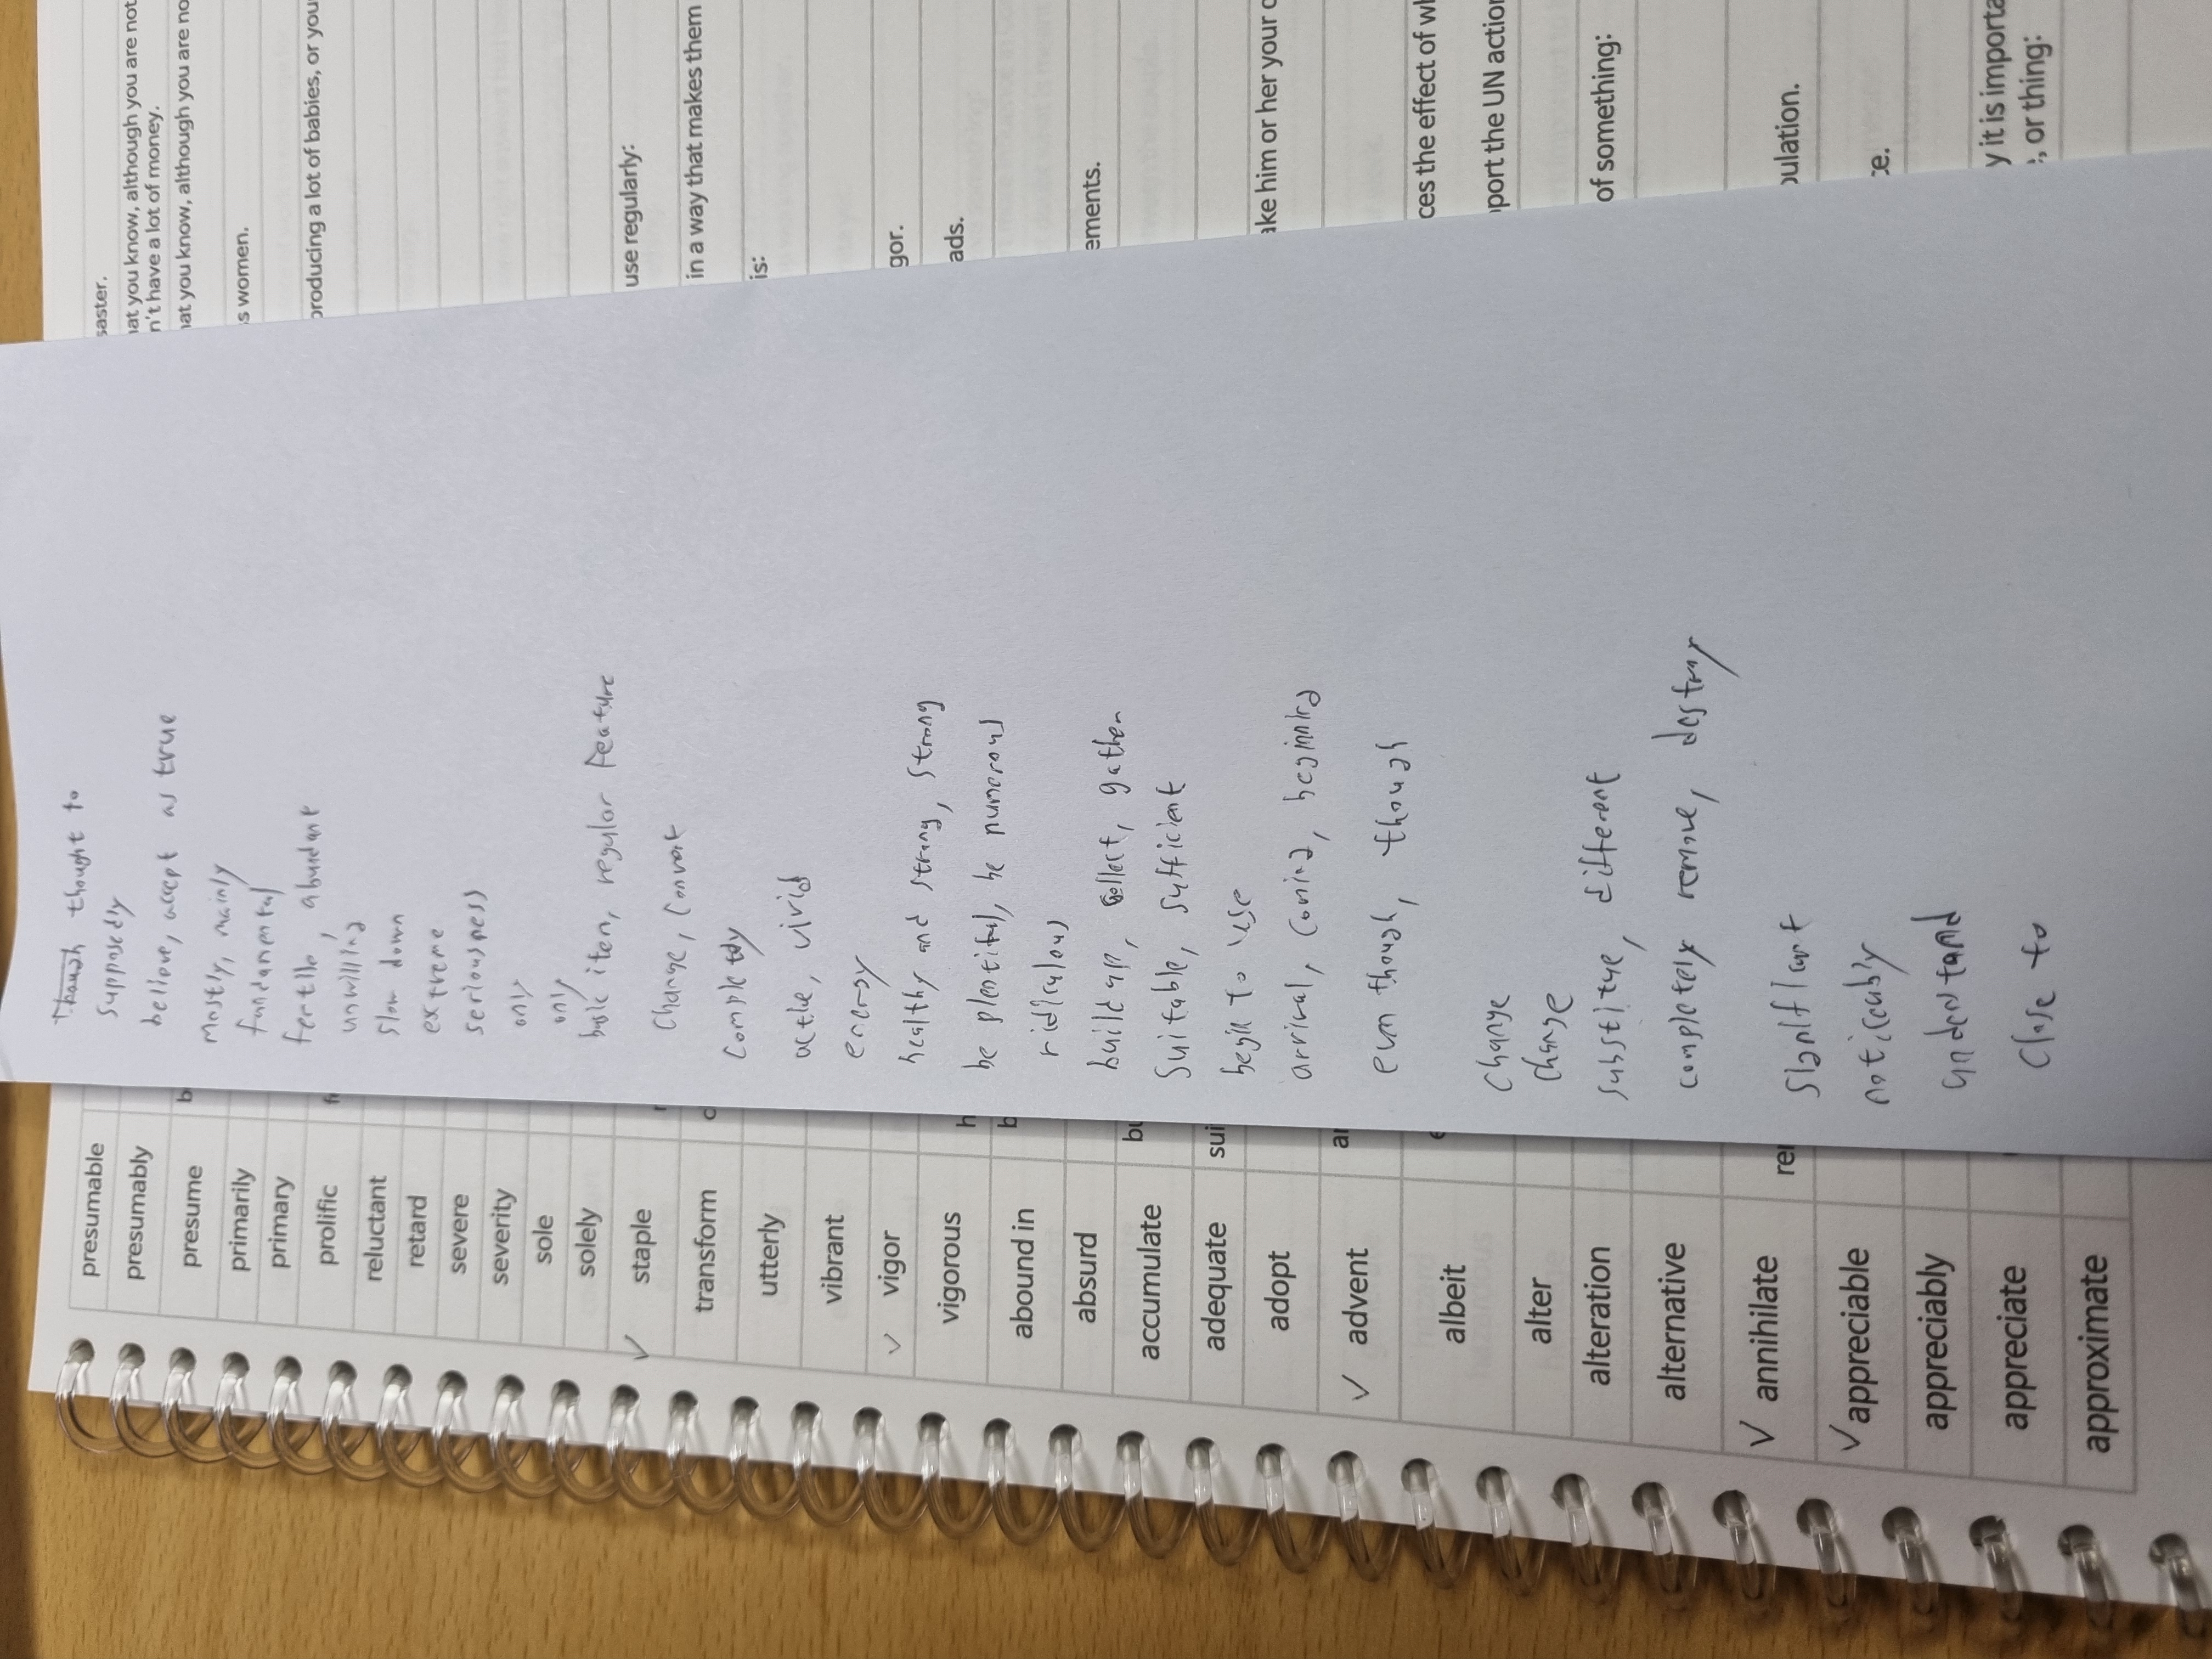 presumable
presumably
presume
primarily
primary
prolific
reluctant
retard
severe
severity
sole
solely
✓ staple
transform
utterly
vibrant
✓ vigor
vigorous
abound in
absurd
accumulate
adequate
adopt
✓ advent
albeit
alter
alteration
alternative
✓ annihilate
✓ appreciable
appreciably
appreciate
approximate
thought to
supposedly
believe, accept as true
mostly, mainly
fundamental
fertile, abundant
unwilling
slow down
extreme
seriousness
only
only
basic item, regular feature
change, convert
completely
active, vivid
energy
healthy and strong, strong
be plentiful, be numerous
ridiculous
build up, collect, gather
suitable, sufficient
begin to use
arrival, coming, beginning
even though, though
change
change
substitue, different
completely remove, destroy
significant
noticeably
understand
close to
saster.
hat you know, although you are not
n't have a lot of money.
hat you know, although you are no
s women.
producing a lot of babies, or you
use regularly:
in a way that makes them
is:
gor.
ads.
ements.
ake him or her your
ces the effect of
port the UN action
of something:
pulation.
ce.
y it is importa
, or thing: